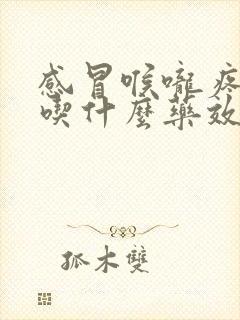 感冒喉嚨疼
喫什麼藥效
孤木雙